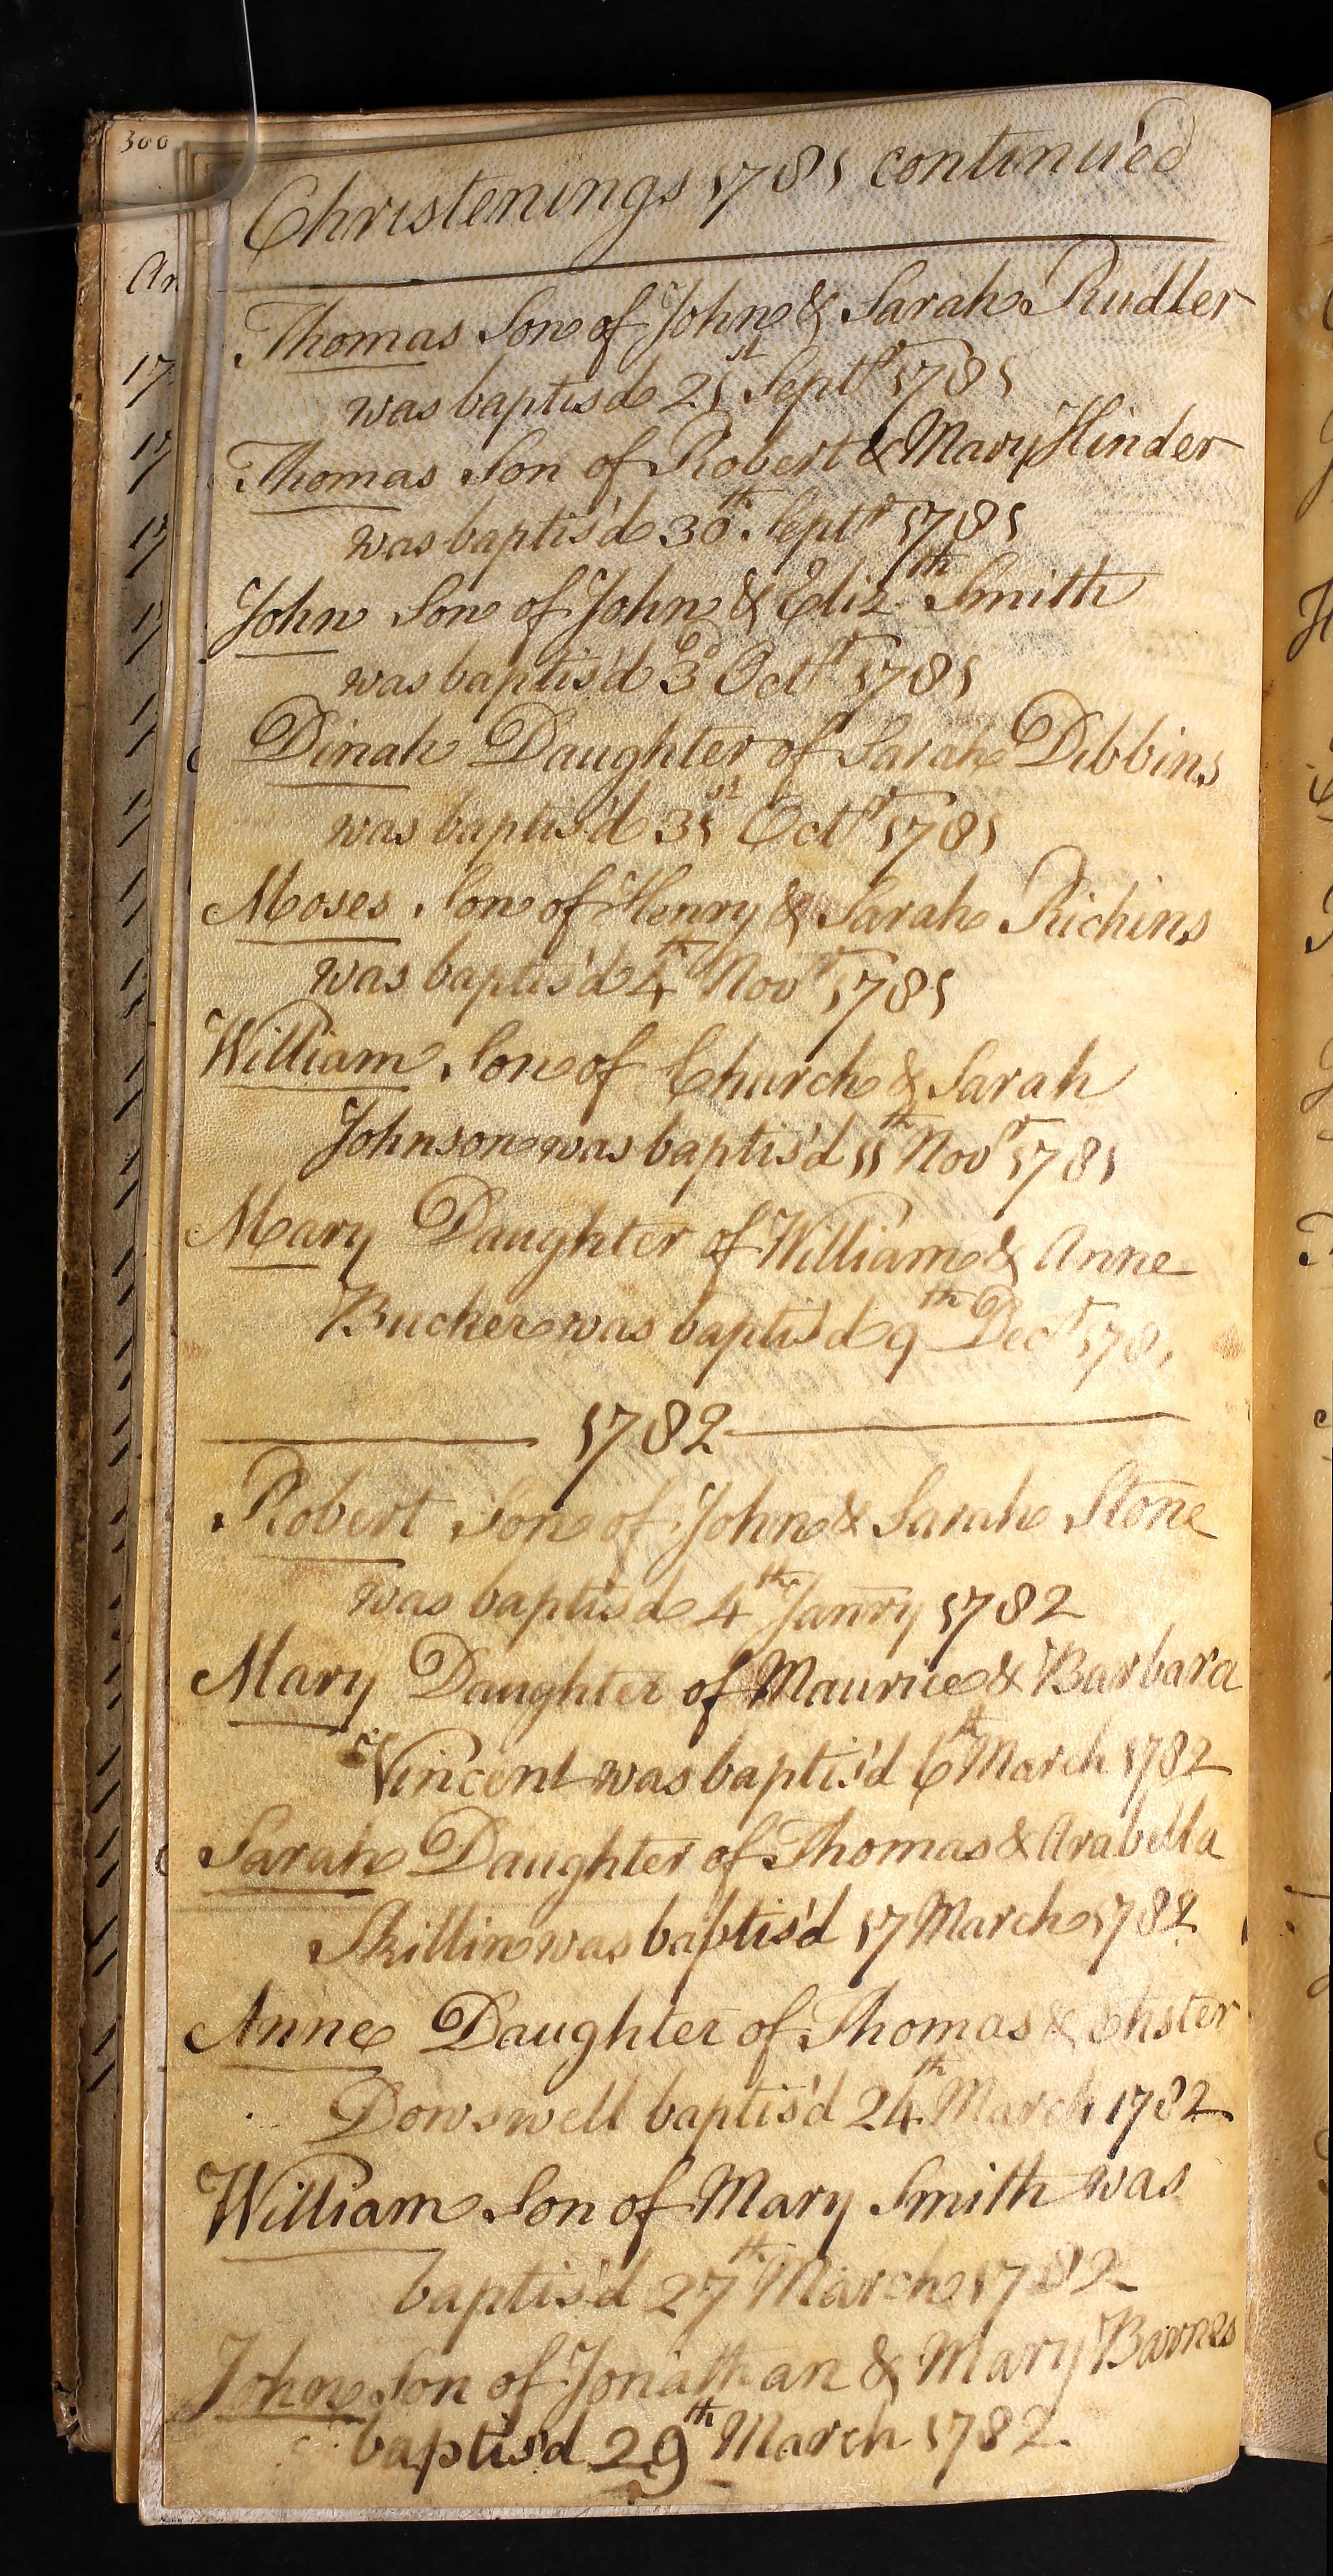 300
Christenings 1781 continued
Thomas Son of John & Sarah Rudler
was baptis'd 21st Septr 1781
Thomas Son of Robert & Mary Hinder
was baptis'd 30th Septr 1781
John Son of John & Elizth Smith
was baptis'd 3d Octr 1781
Dinah Daughter of Sarah Dibbins
was baptis'd 31st Octr 1781
Moses Son of Henry & Sarah Richins
was baptis'd 4th Novr 1781
William Son of Church & Sarah
Johnson was baptis'd 11th Novr 1781
Mary Daughter of William & Anne
Bucker was baptis'd 9th Decr 1781
1782
Robert Son of John & Sarah Stone
was baptis'd 4th Janry 1782
Mary Daughter of Maurice & Barbara
Vincent was baptis'd 6th March 1782
Sarah Daughter of Thomas & Arabella
Skillin was baptis'd 17 March 1782
Anne Daughter of Thomas &
Dowswell baptis'd 24th March 1782
William Son of Mary Smith was
baptis'd 27th March 1782
John Son of Jonathan & Mary Barnes
baptis'd 29th March 1782